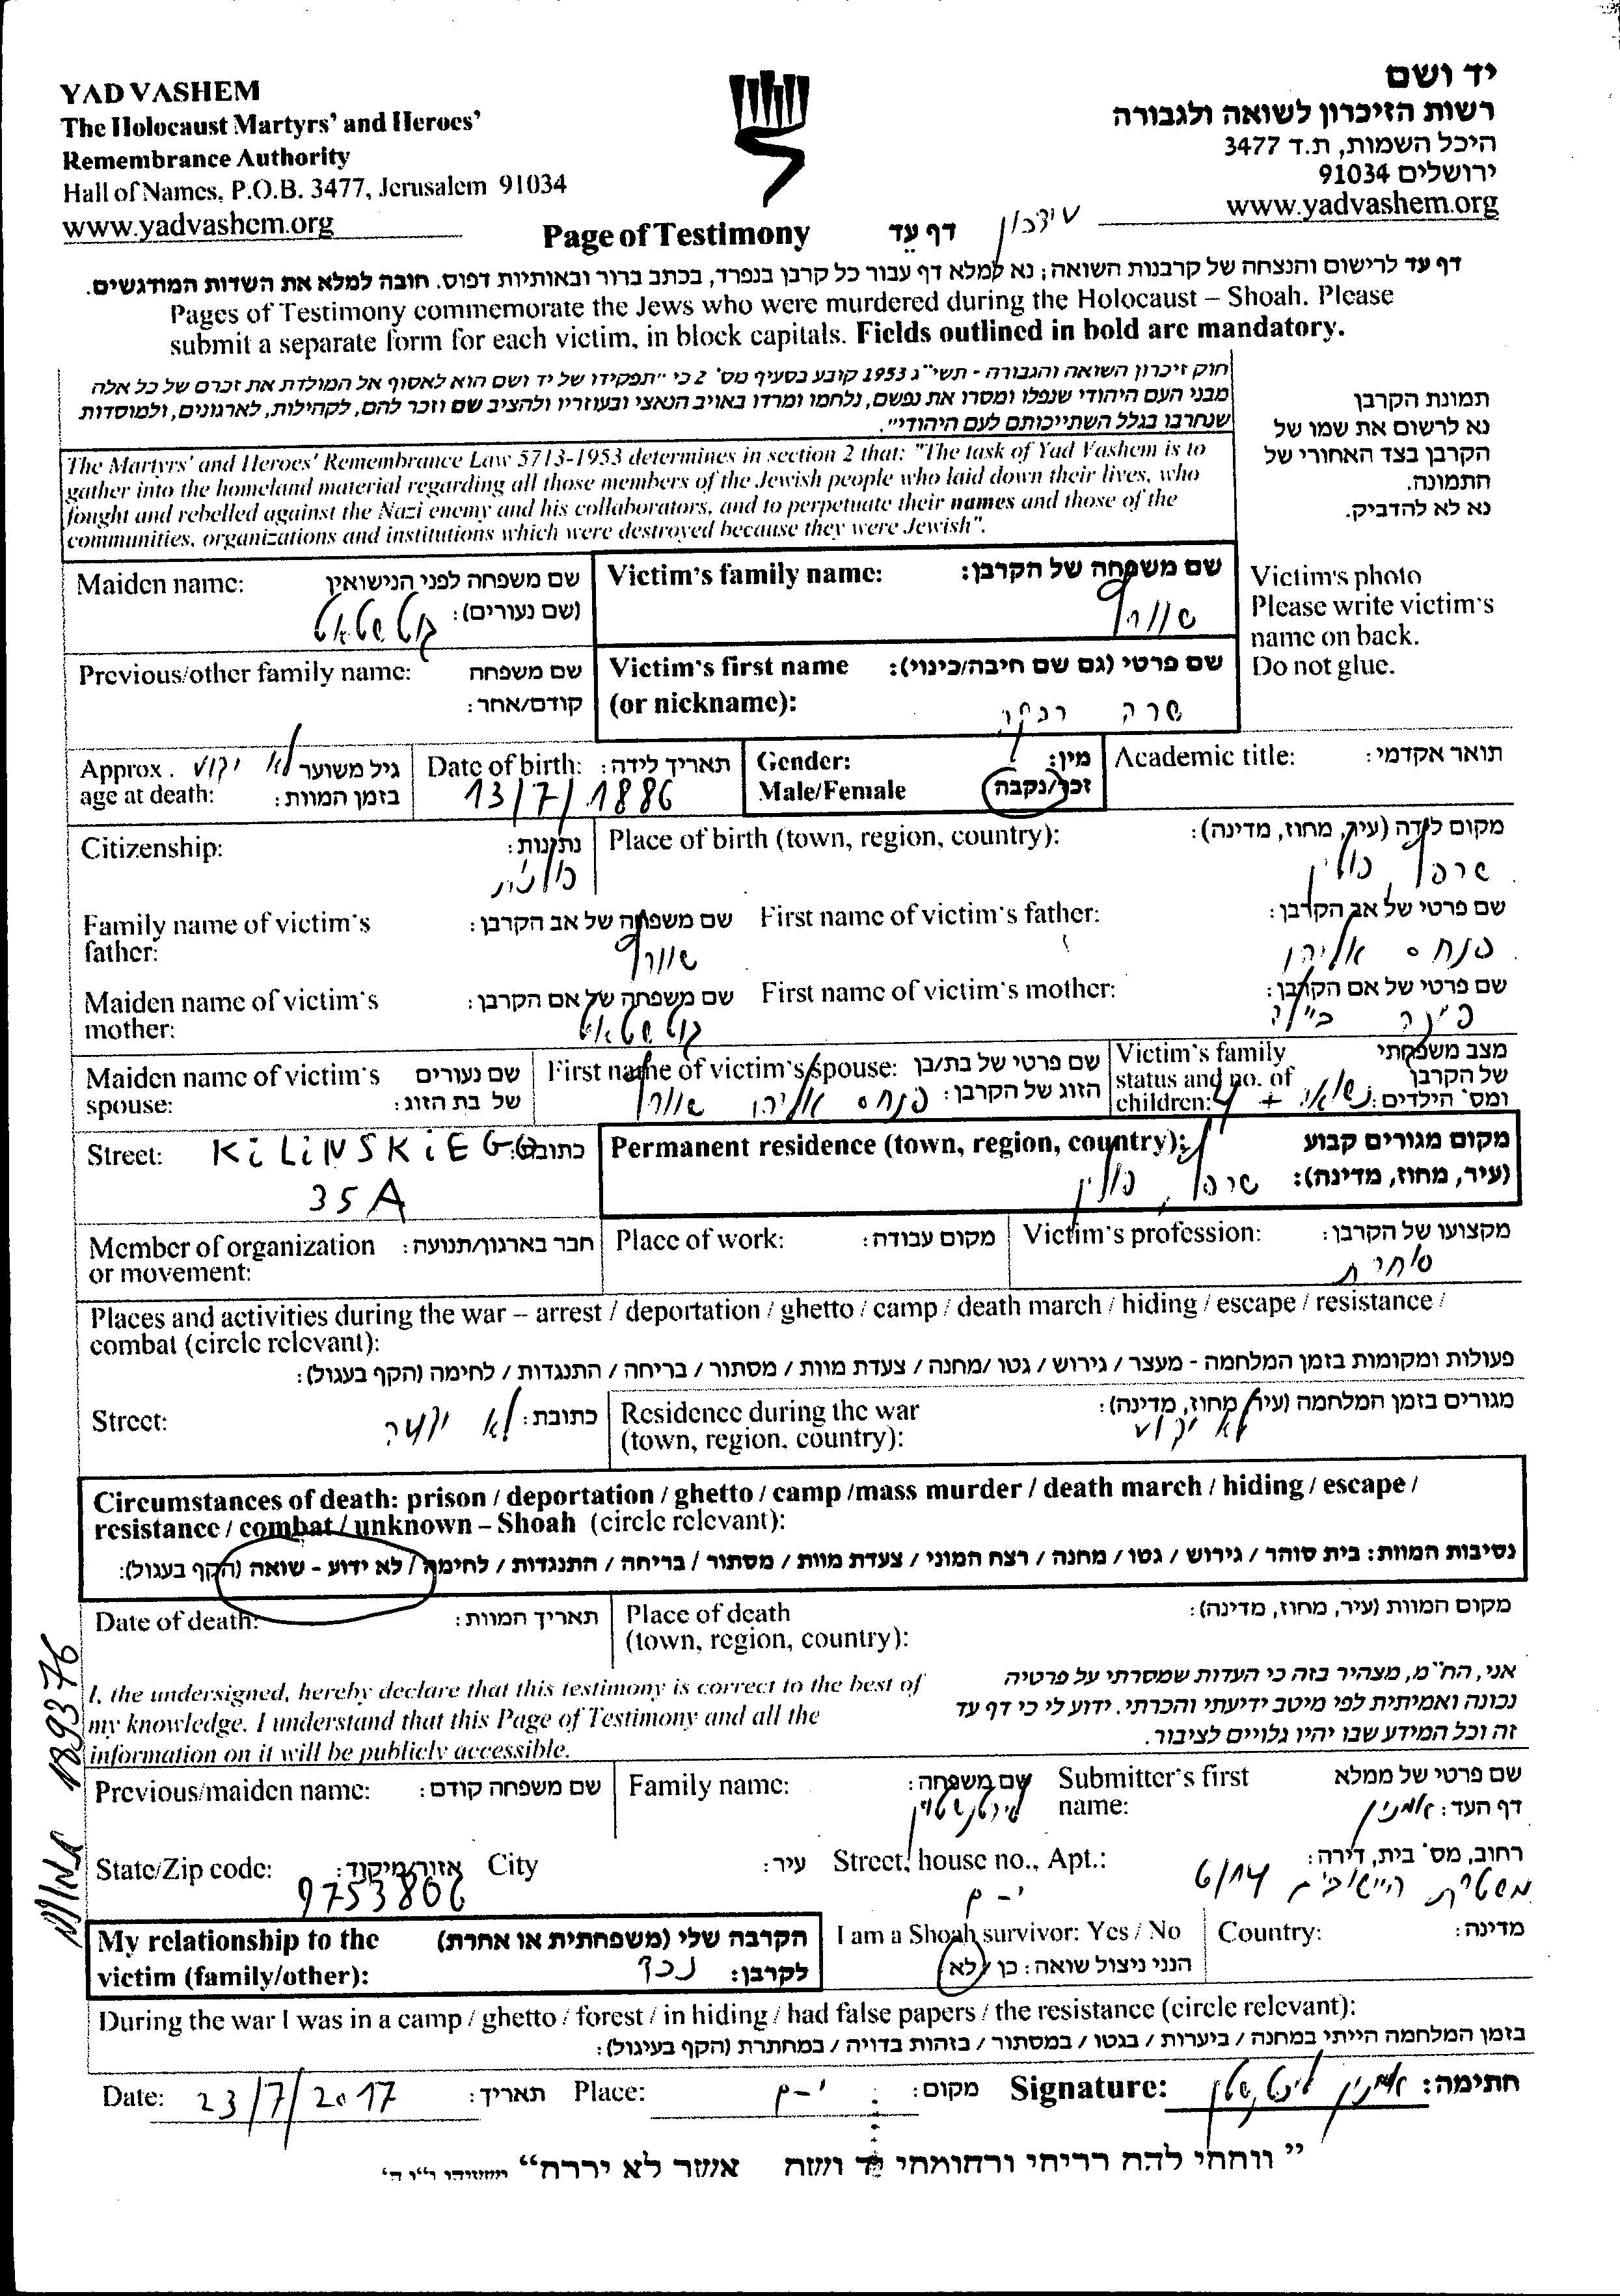 YAD VASHEM
The Holocaust Martyrs' and Heroes'
Remembrance Authority
Hall of Names, P.O.B. 3477, Jerusalem 91034
www.yadvashem.org
יד ושם
רשות הזיכרון לשואה ולגבורה
היכל השמות, ת.ד 3477
ירושלים 91034
www.yadvashem.org
Page of Testimony דף עֵד עידכון
דף עד לרישום והנצחה של קרבנות השואה; נא למלא דף עבור כל קרבן בנפרד, בכתב ברור ובאותיות דפוס. חובה למלא את השדות המודגשים.
Pages of Testimony commemorate the Jews who were murdered during the Holocaust – Shoah. Please
submit a separate form for each victim, in block capitals. Fields outlined in bold are mandatory.
חוק זיכרון השואה והגבורה - תשי״ג 1953 קובע בסעיף מס' 2 כי ״תפקידו של יד ושם הוא לאסוף אל המולדת את זכרם של כל אלה
מבני העם היהודי שנפלו ומסרו את נפשם, נלחמו ומרדו באויב הנאצי ובעוזריו ולהציב שם וזכר להם, לקהילות, לארגונים, ולמוסדות
שנחרבו בגלל השתייכותם לעם היהודי״.
The Martyrs' and Heroes' Remembrance Law 5713-1953 determines in section 2 that: "The task of Yad Vashem is to
gather into the homeland material regarding all those members of the Jewish people who laid down their lives, who
fought and rebelled against the Nazi enemy and his collaborators, and to perpetuate their names and those of the
communities, organizations and institutions which were destroyed because they were Jewish".
תמונת הקרבן
נא לרשום את שמו של
הקרבן בצד האחורי של
התמונה.
נא לא להדביק.
Victim's photo
Please write victim's
name on back.
Do not glue.
Maiden name: שם משפחה לפני הנישואין
(שם נעורים): גוטשטאט
Victim's family name: שם משפחה של הקרבן:
שוורץ
Previous/other family name: שם משפחה
קודם/אחר:
Victim's first name שם פרטי (גם שם חיבה/כינוי):
(or nickname): שרה רבקה
Approx. גיל משוער לא ידוע
age at death: בזמן המוות:
Date of birth: תאריך לידה:
13/7/1886
Gender: מין:
Male/Female זכר/נקבה
Academic title: תואר אקדמי:
Citizenship: נתינות:
פולנית
Place of birth (town, region, country): מקום לידה (עיר, מחוז, מדינה):
שרפץ פולין
Family name of victim's שם משפחה של אב הקרבן:
father: שוורץ
First name of victim's father: שם פרטי של אב הקרבן:
פנחס אליהו
Maiden name of victim's שם משפחה של אם הקרבן:
mother: גוטשטאט
First name of victim's mother: שם פרטי של אם הקרבן:
ביילה
Maiden name of victim's שם נעורים
spouse: של בת הזוג:
First name of victim's spouse: שם פרטי של בת/בן
הזוג של הקרבן: פנחס אליהו שוורץ
Victim's family מצב משפחתי
status and no. of של הקרבן
children: ומס' הילדים: נשואה + 4
Street: KiLiNSKiEGO כתובת:
35A
Permanent residence (town, region, country): מקום מגורים קבוע
(עיר, מחוז, מדינה): שרפץ, פולין
Member of organization חבר בארגון/תנועה:
or movement:
Place of work: מקום עבודה:
Victim's profession: מקצועו של הקרבן:
סוחרת
Places and activities during the war – arrest / deportation / ghetto / camp / death march / hiding / escape / resistance /
combat (circle relevant):
פעולות ומקומות בזמן המלחמה - מעצר / גירוש / גטו /מחנה / צעדת מוות / מסתור / בריחה / התנגדות / לחימה (הקף בעגול):
Street: כתובת: לא ידוע
Residence during the war מגורים בזמן המלחמה (עיר, מחוז, מדינה):
(town, region, country): לא ידוע
Circumstances of death: prison / deportation / ghetto / camp /mass murder / death march / hiding / escape /
resistance / combat / unknown – Shoah (circle relevant):
נסיבות המוות: בית סוהר / גירוש / גטו / מחנה / רצח המוני / צעדת מוות / מסתור / בריחה / התנגדות / לחימה / לא ידוע - שואה (הקף בעגול):
Date of death: תאריך המוות:
Place of death מקום המוות (עיר, מחוז, מדינה):
(town, region, country):
I, the undersigned, hereby declare that this testimony is correct to the best of
my knowledge. I understand that this Page of Testimony and all the
information on it will be publicly accessible.
אני, הח״מ, מצהיר בזה כי העדות שמסרתי על פרטיה
נכונה ואמיתית לפי מיטב ידיעתי והכרתי. ידוע לי כי דף עד
זה וכל המידע שבו יהיו גלויים לציבור.
189376
Previous/maiden name: שם משפחה קודם:
Family name: שם משפחה:
Submitter's first שם פרטי של ממלא
name: דף העד: אמנון
State/Zip code: אזור/מיקוד:
9753806
City עיר:
י-ם
Street, house no., Apt.: רחוב, מס' בית, דירה:
משמרת היישוב 6/14
My relationship to the הקרבה שלי (משפחתית או אחרת)
victim (family/other): לקרבן: נכד
I am a Shoah survivor: Yes / No
הנני ניצול שואה: כן / לא
Country: מדינה:
During the war I was in a camp / ghetto / forest / in hiding / had false papers / the resistance (circle relevant):
בזמן המלחמה הייתי במחנה / ביערות / בגטו / במסתור / בזהות בדויה / במחתרת (הקף בעיגול):
Date: 23/7/2017 תאריך: Place: י-ם מקום: Signature: חתימה:
״ ונתתי להם בביתי ובחומתי יד ושם אשר לא יכרת״ ישעיהו נ״ו ה'